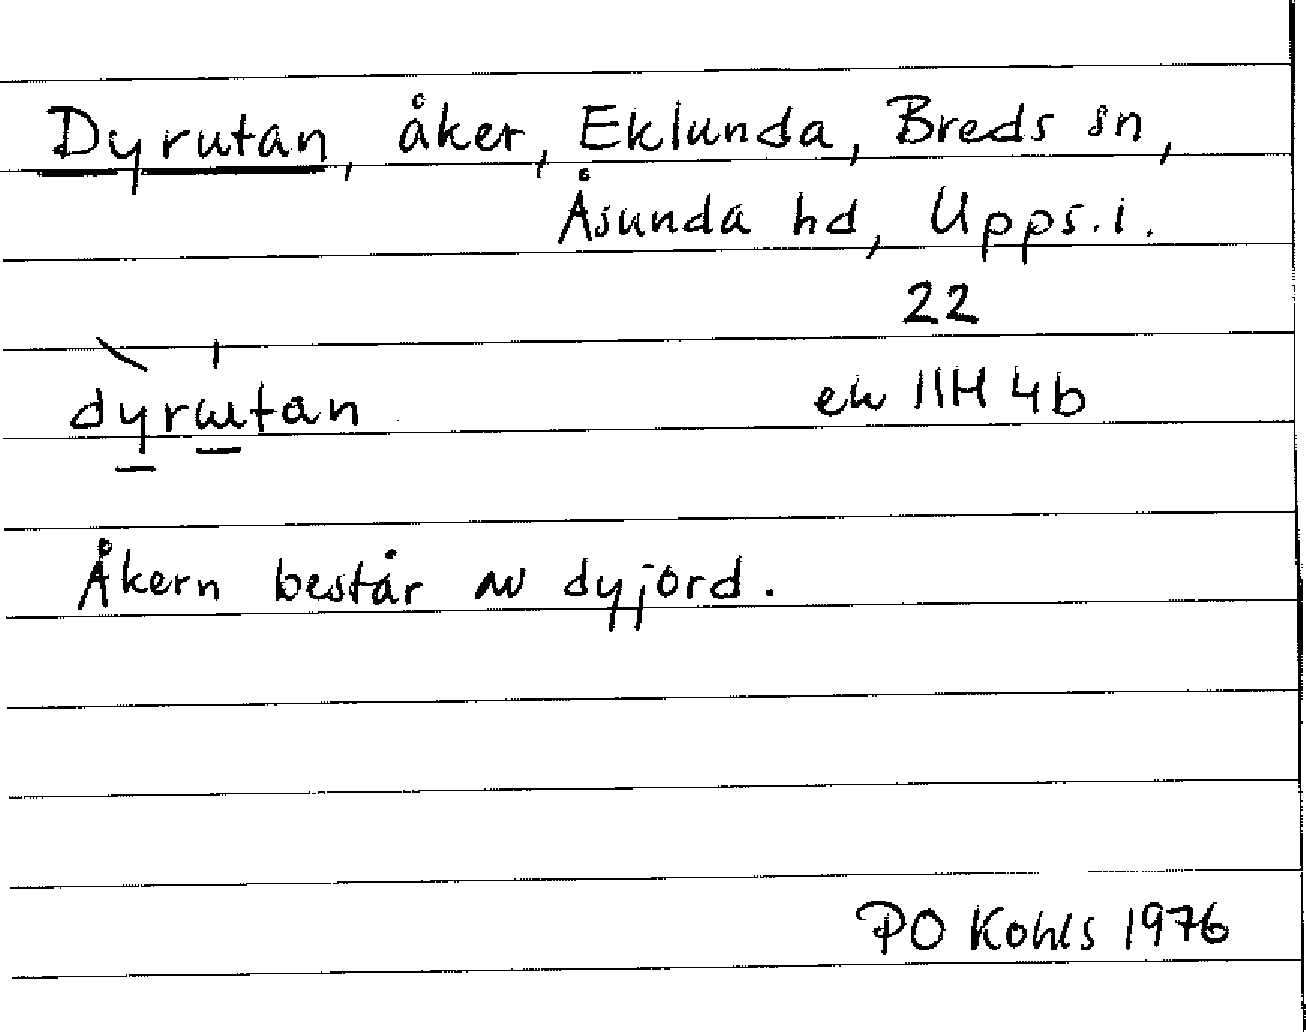 Dyrutan, åker, Eklunda, Breds sn,
Åsunda hd, Upps. l.
22
dyrɯtan ek 11H 4b
Åkern består av dyjord.
PO Kohls 1976